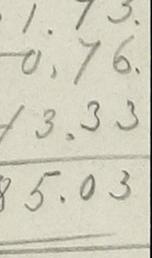 1.73.
0.76.
13.33
85.03